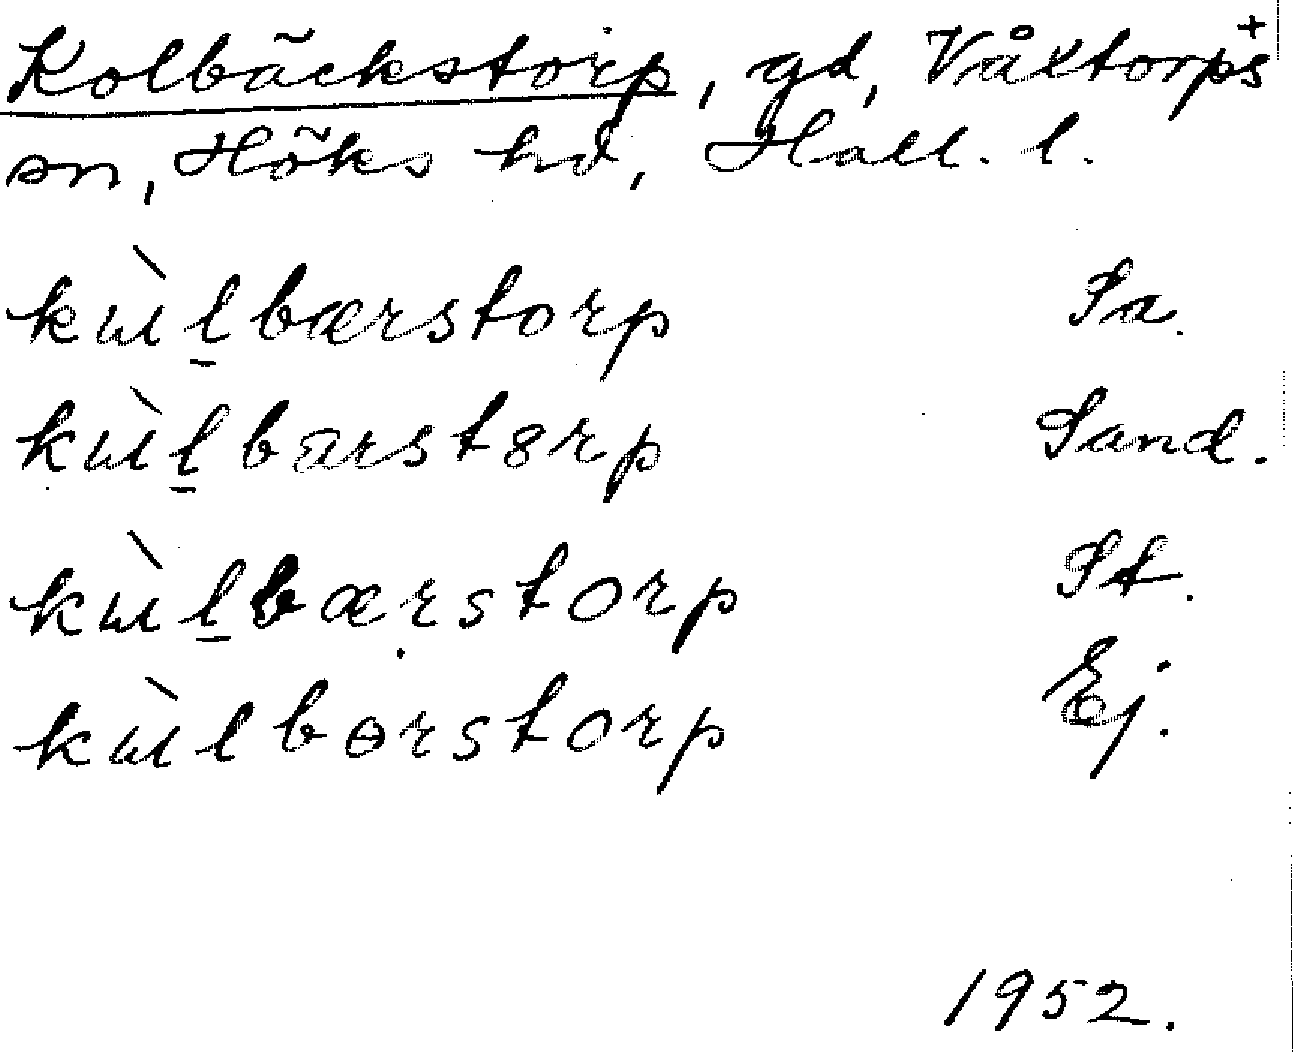 Kolbäckstorp, gd, Våxtorps +
sn, Höks hd, Hall. l.
kɯ̀l̠bærstorp Sa.
kɯ̀l̠bærstɵrp Sand.
kɯ̀l̠bæṛstorp St.
kɯ̀lbɵrstorp Ej.
1952.